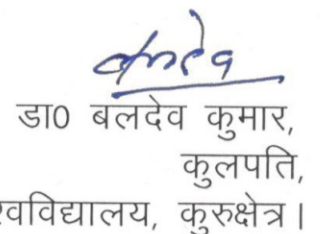 डा0 बलदेव कुमार,
कुलपति,
श्वविद्यालय, कुरुक्षेत्र।